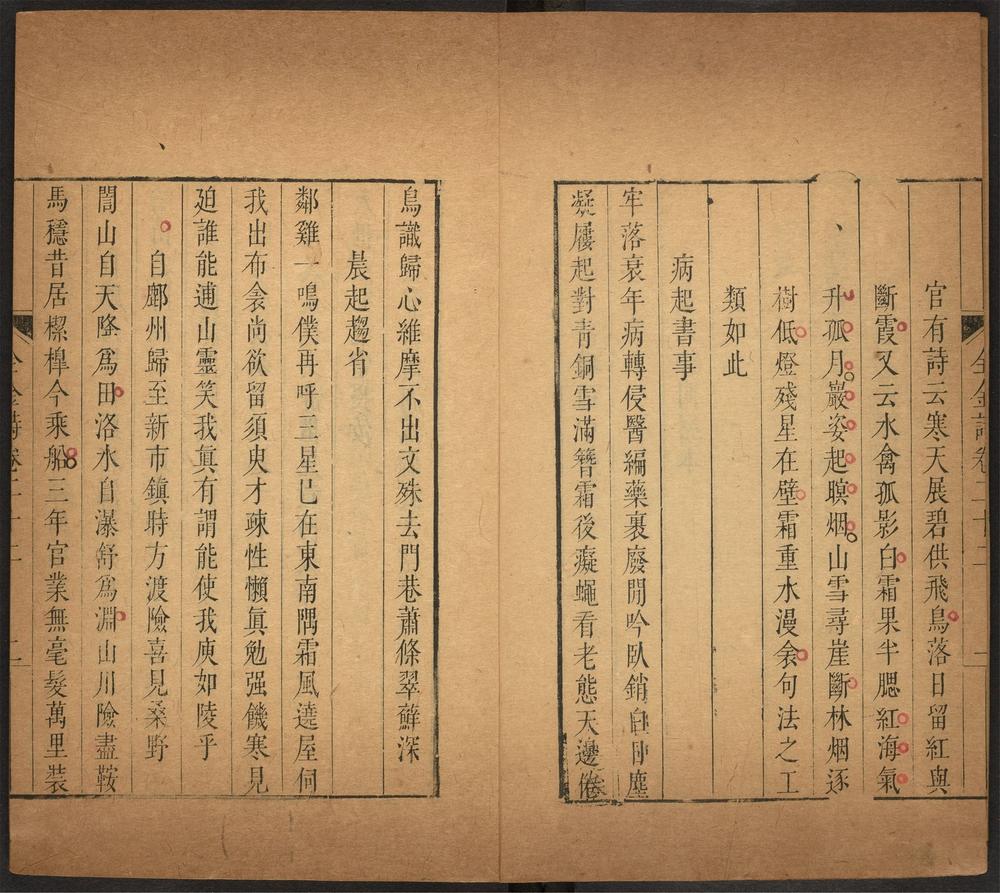 官有詩云寒天展碧供飛鳥落日留紅與
斷霞又云水禽孤影白霜果半腮紅海氣
升孤月巖姿起暝烟山雪尋崖斷林烟逐
樹低燈殘星在壁霜重水漫衾句法之工
類如此
病起書事
牢落衰年病轉侵醫編藥裹廢閒吟臥銷白日塵
凝屨起對青銅雪滿簪霜後癡蠅看老態天邊倦
全金詩卷二十二
一
鳥識歸心維摩不出文殊去門巷蕭條翠蘚深
晨起趨省
鄰雞一鳴僕再呼三星已在東南隅霜風遶屋伺
我出布衾尚欲留須臾才疎性懶真勉强饑寒見
廹誰能逋山靈笑我真有謂能使我庾如陵乎
自鄜州歸至新市鎮時方渡險喜見桑野
誾山自天墜為田洛水自瀑舒為淵山川險盡鞍
馬穩昔居樏橰今乘船三年官業無毫髮萬里裝
全金詩卷二十二
二